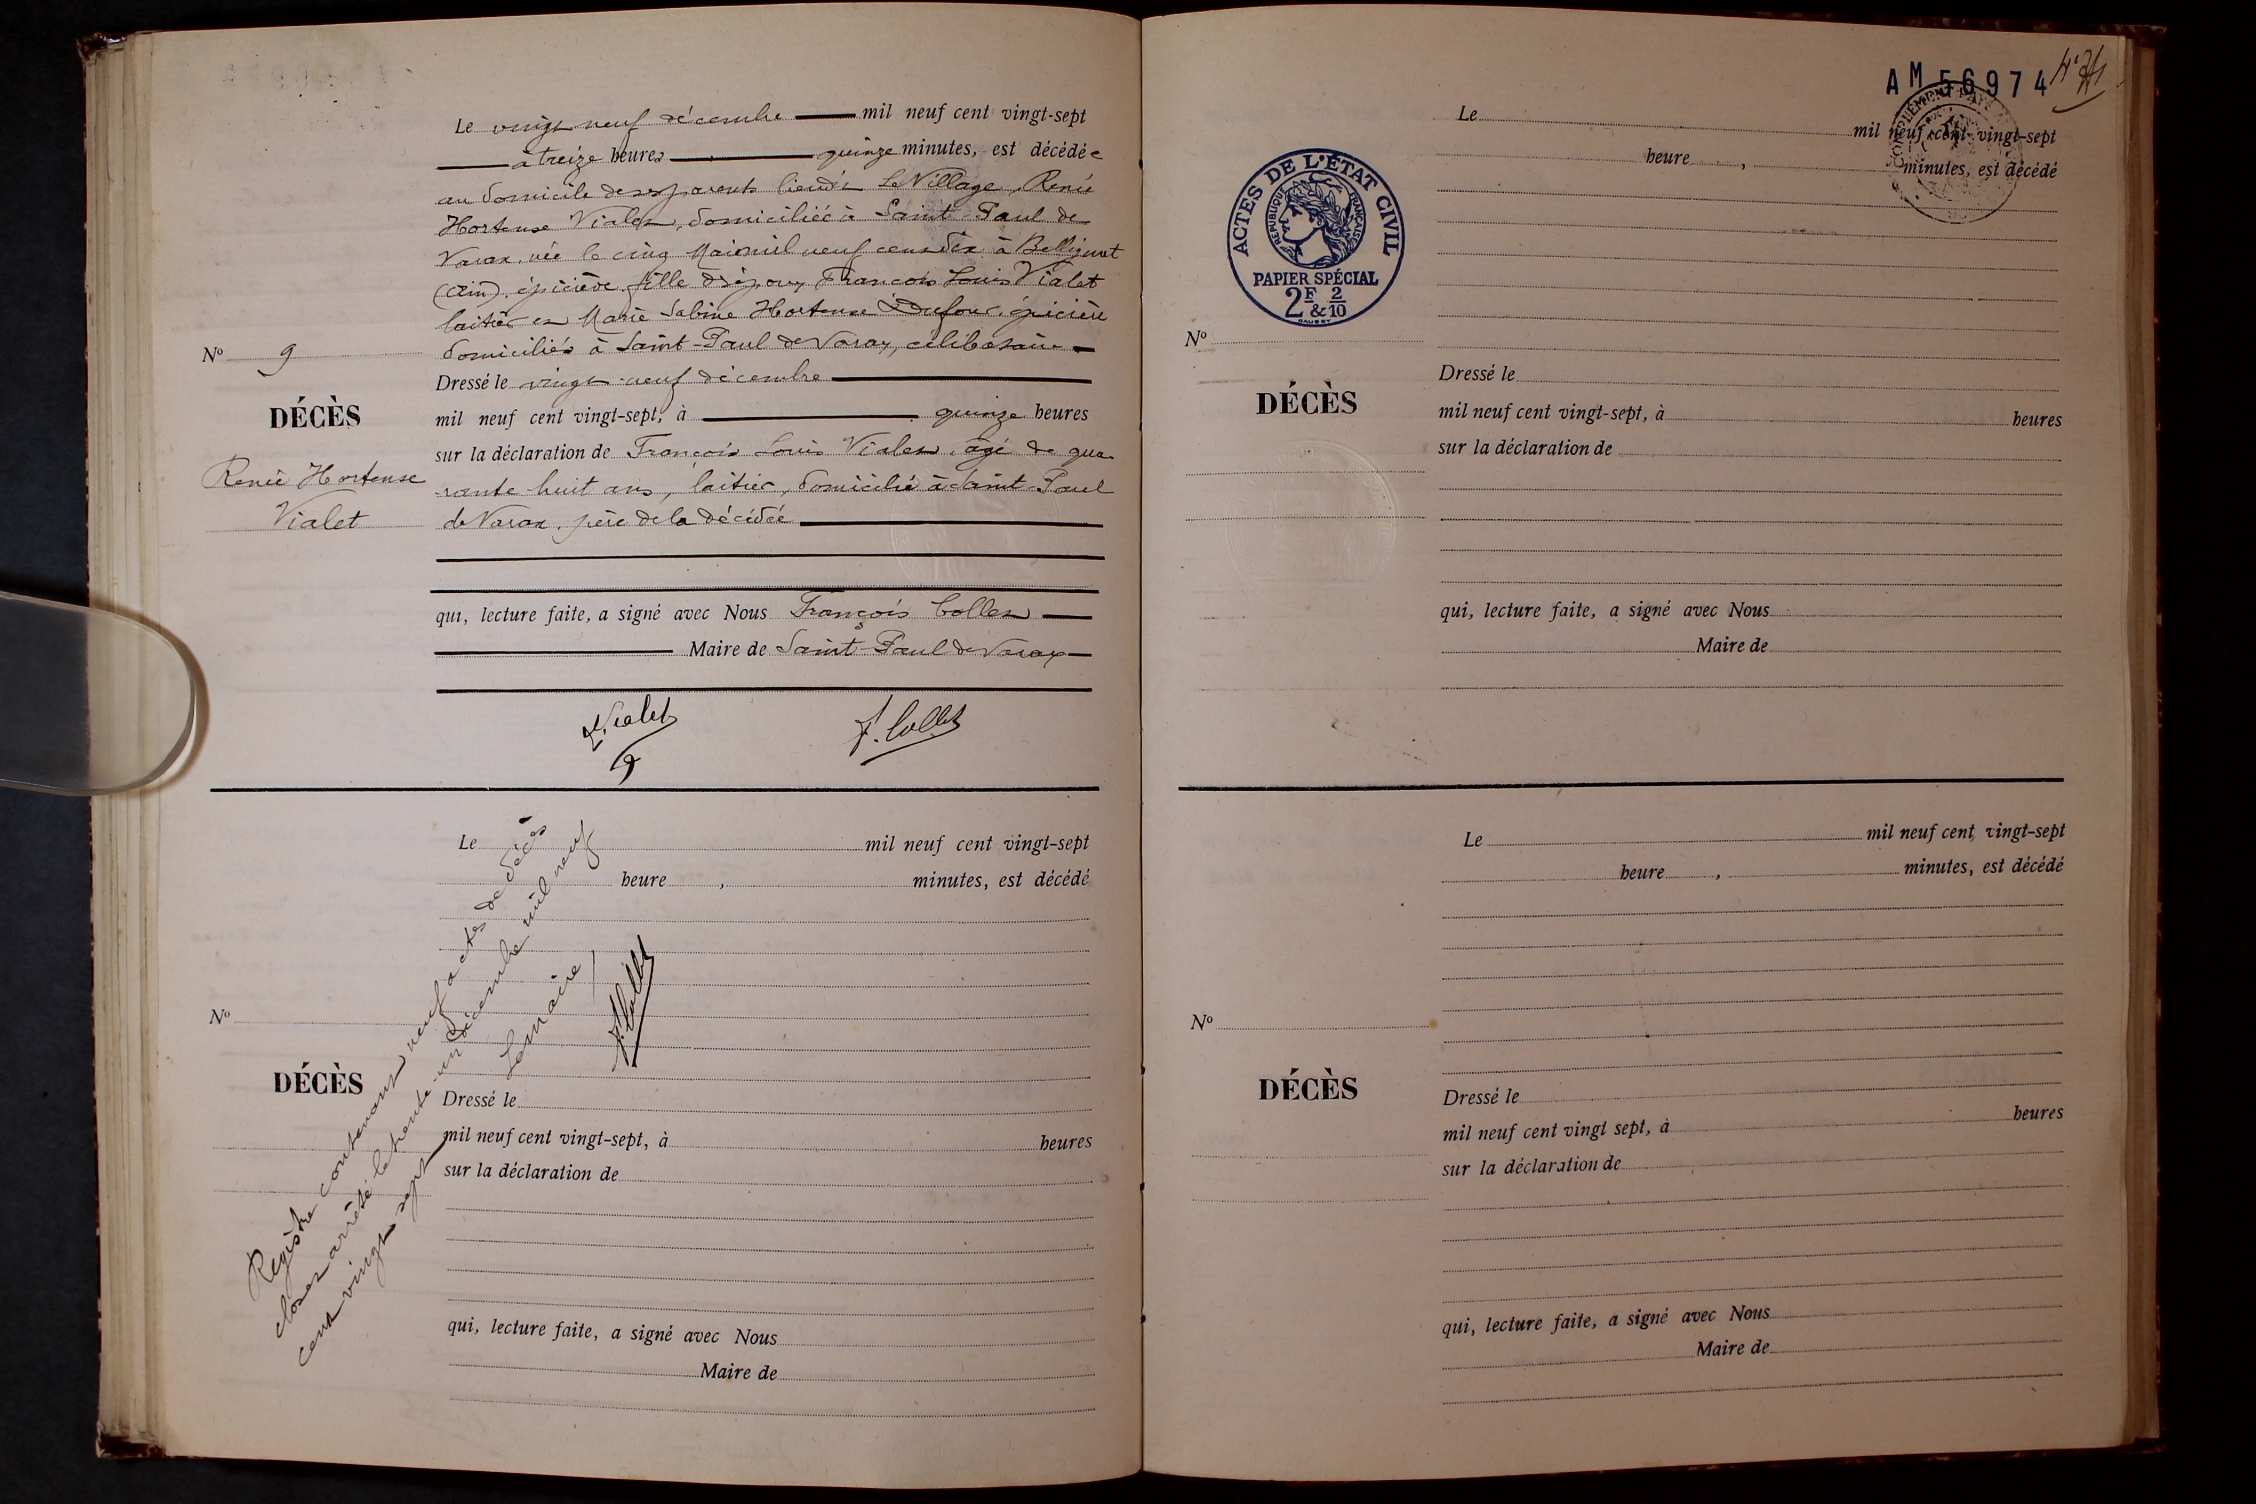 Le vingt neuf décembre mil neuf cent vingt-sept
à treize heures quinze minutes, est décédée
au domicile de ses parents lieudit Le Village, Renée
Hortense Vialet, domiciliée à Saint-Paul de
Varax, née le cinq Mai mil neuf cent dix à Bellignat
(Ain), épicière, fille de François Louis Vialet
laitier et Marie Sabine Hortense Dufour, épicière
domiciliés à Saint-Paul de Varax, célibataire
Dressé le vingt-neuf décembre
mil neuf cent vingt-sept, à quinze heures
sur la déclaration de François Louis Vialet, âgé de qua-
rante huit ans, laitier, domicilié à Saint-Paul
de Varax, père de la décédée
qui, lecture faite, a signé avec Nous François Collet
Maire de Saint-Paul de Varax
L. Vialet F. Collet
No 9
DÉCÈS
Renée Hortense
Vialet
Le mil neuf cent vingt-sept
heure , minutes, est décédé
No
DÉCÈS
Dressé le
mil neuf cent vingt-sept, à heures
sur la déclaration de
qui, lecture faite, a signé avec Nous
Maire de
Registre contenant neuf actes de décès
clos et arrêté le trente-un décembre mil neuf
cent vingt sept
Le maire
F. Collet
AM 56974
ACTES DE L'ÉTAT CIVIL
RÉPUBLIQUE FRANÇAISE
PAPIER SPÉCIAL
2F & 2/10
Le mil neuf cent vingt-sept
heure , minutes, est décédé
No
DÉCÈS
Dressé le
mil neuf cent vingt-sept, à heures
sur la déclaration de
qui, lecture faite, a signé avec Nous
Maire de
Le mil neuf cent vingt-sept
heure , minutes, est décédé
No
DÉCÈS
Dressé le
mil neuf cent vingt sept, à heures
sur la déclaration de
qui, lecture faite, a signé avec Nous
Maire de